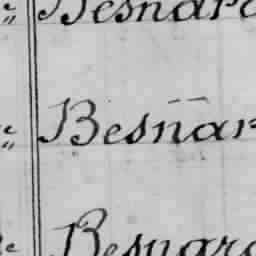 Besnard
Besnar
Besnard